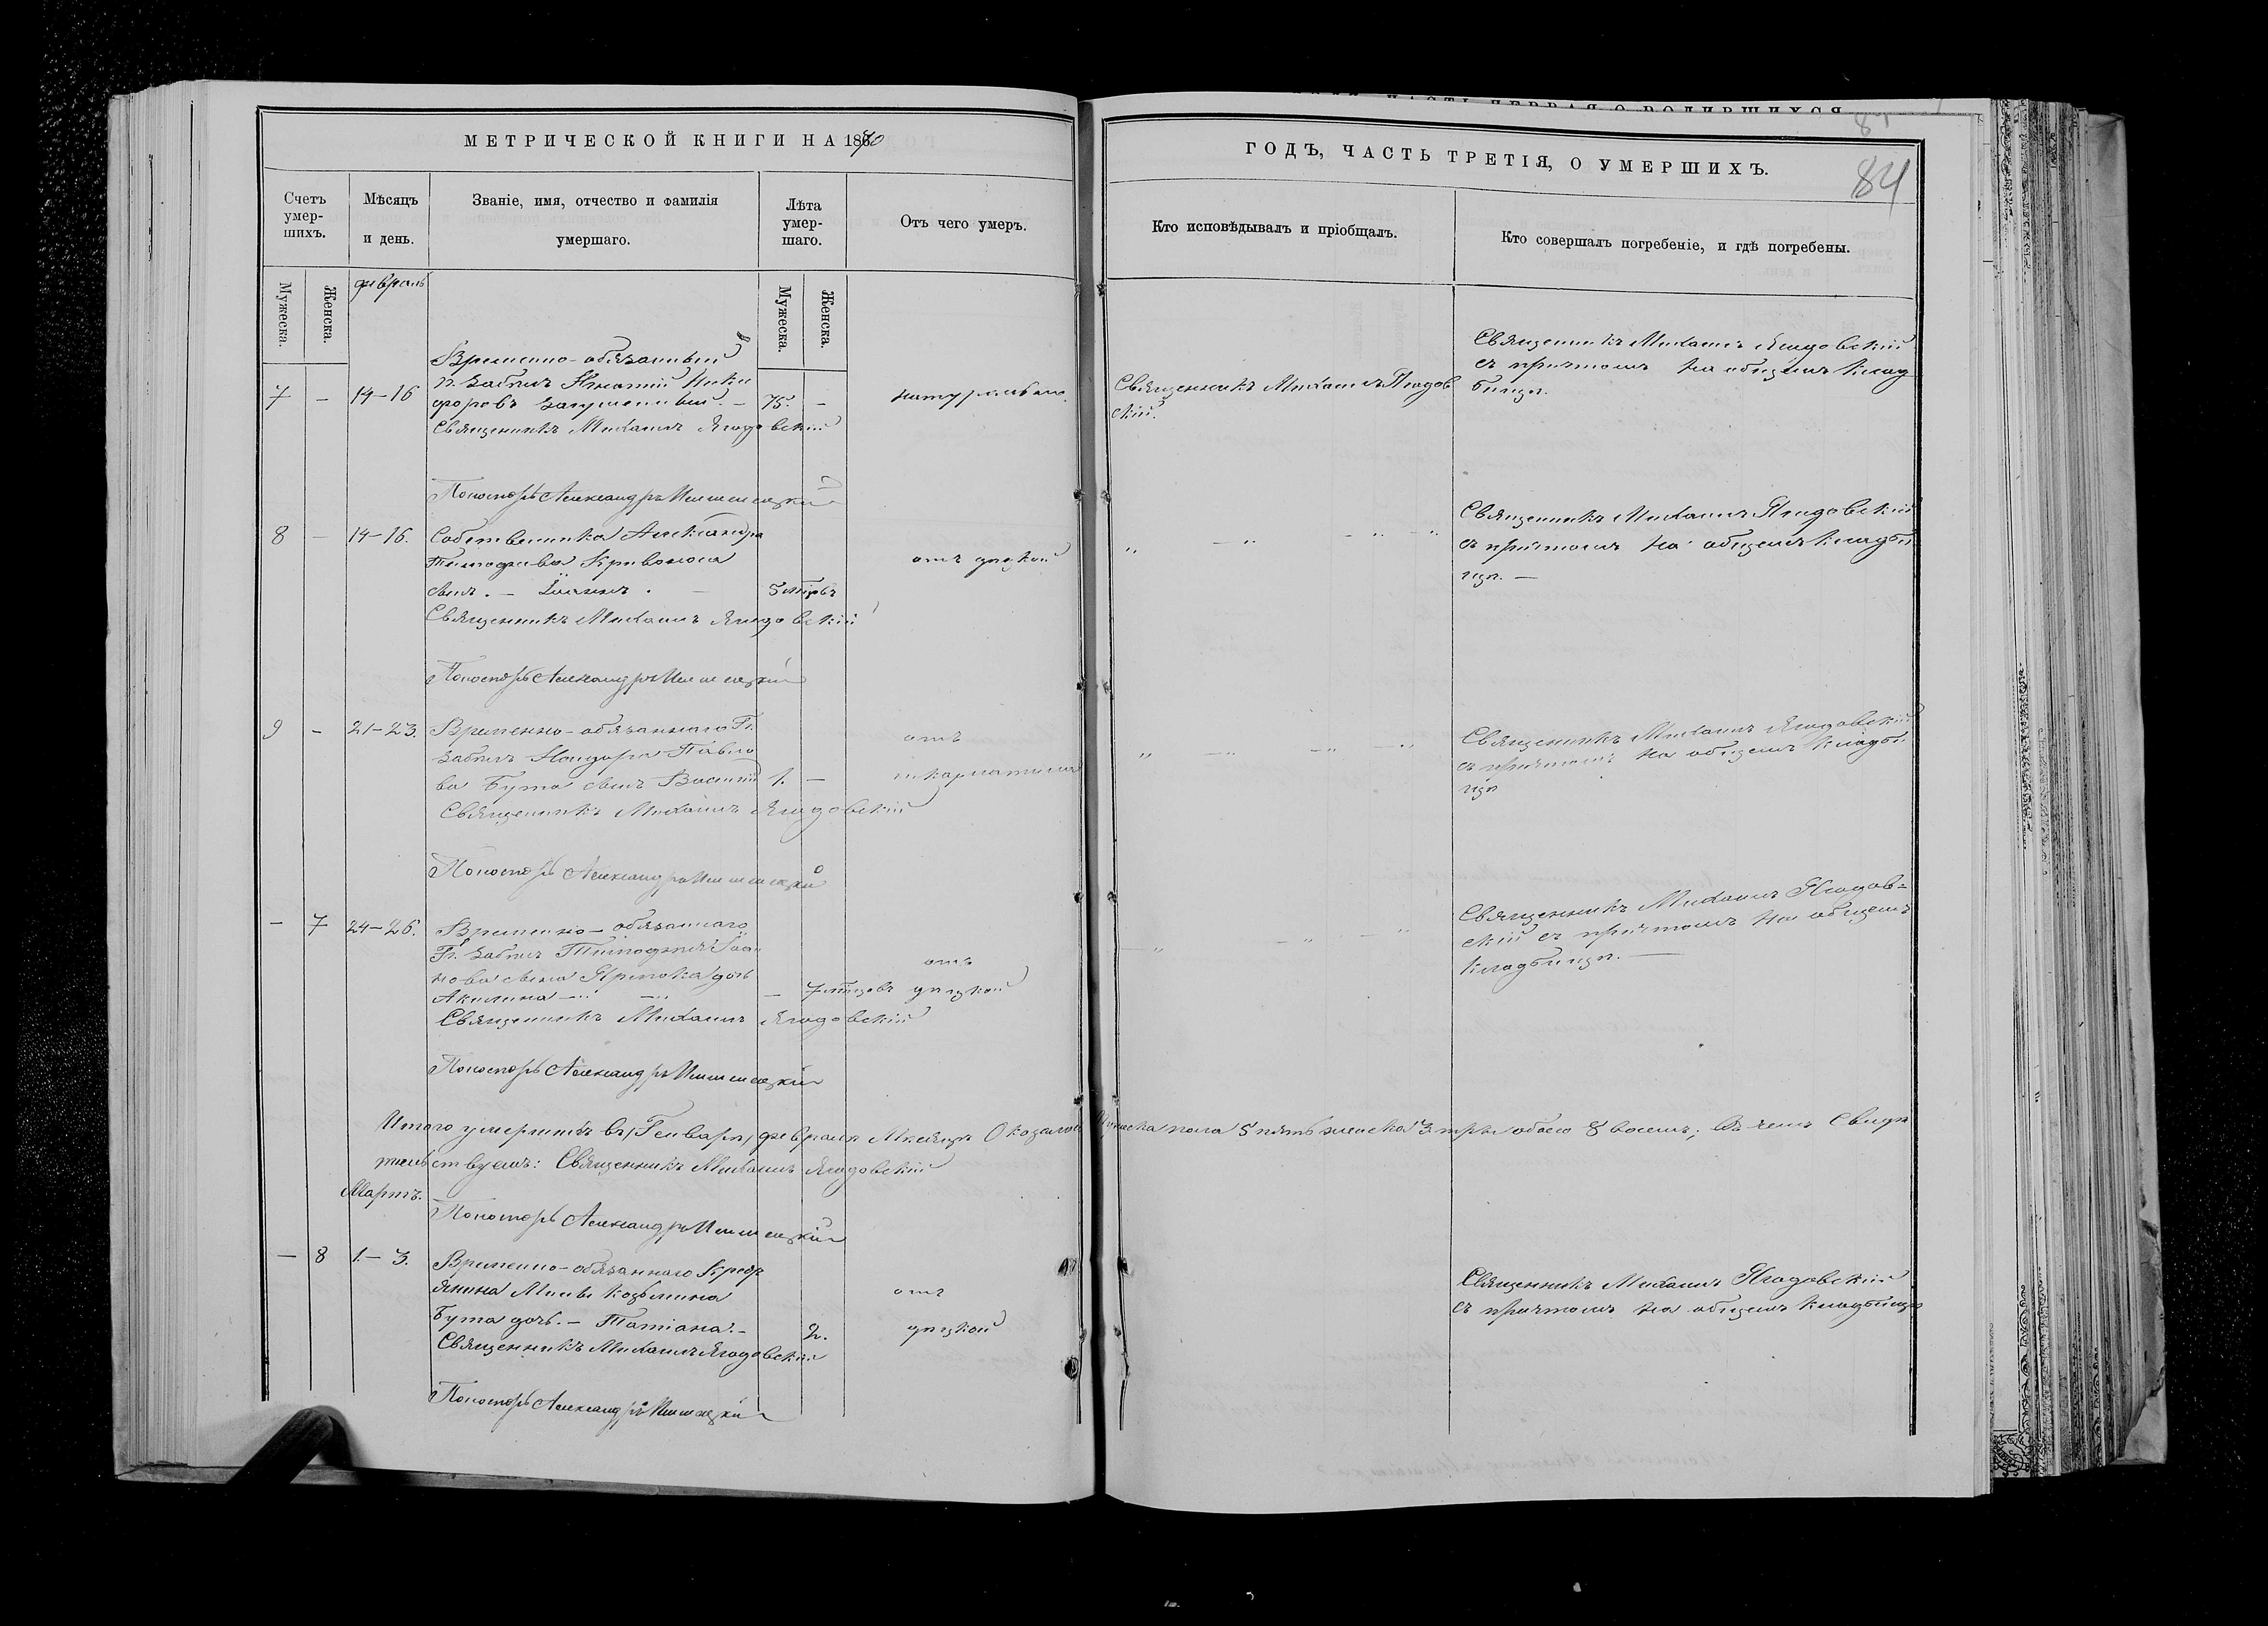 МЕТРИЧЕСКОЙ КНИГИ НА 1870
Счетъ умер-шихъ.
Мѣсяцъ и день.
Званіе, имя, отчество и фамилія умершаго.
Лѣта умер-шаго.
Отъ чего умеръ.
Мужеска.
Женска.
Мужеска.
Женска.
февраль
Временно-обязанный
7 - 14-16 Никифоровъ 75. -
Священникъ Михаилъ Ягодовскій
Пономарь Александръ
8 - 14-16. Собственника Александра
Тимофеева Кривоноса
сынъ. - Іоаннъ. - 5
Священникъ Михаилъ Ягодовскій
Пономарь Александръ
9 - 21-23. Временно-обязаннаго
Павло
ва Бута сынъ Василій 1. -
отъ
Священникъ Михаилъ Ягодовскій
Пономарь Александръ
- 7 24-26. Временно-обязаннаго
Іоан
нова сына дочь
Акилина - 7
отъ
Священникъ Михаилъ Ягодовскій
Пономарь Александръ
Итого умершихъ въ Генварѣ, февралѣ Мѣсяцѣ Оказалось Мужеска пола 5 пять женска 3 три обоего 8 восемь; въ чемъ Свидѣ
тельствуемъ: Священникъ Михаилъ Ягодовскій
Мартъ.
Пономарь Александръ
- 8 1.-3. Временно-обязаннаго Кресть
янина Козьмина
Бута дочь. - Татіана. - 2.
отъ
Священникъ Михаилъ Ягодовскій
Пономарь Александръ
ЧАСТЬ ПЕРВАЯ О РОДИВШИХСЯ
ГОДЪ, ЧАСТЬ ТРЕТІЯ, О УМЕРШИХЪ.
84
Кто исповѣдывалъ и пріобщалъ.
Кто совершалъ погребеніе, и гдѣ погребены.
Священникъ Михаилъ Ягодов
скій.
Священникъ Михаилъ Ягодовскій
съ причтомъ на общемъ клад
бищѣ.
Священникъ Михаилъ Ягодовскій
съ причтомъ на общемъ кладби
щѣ. -
Священникъ Михаилъ Ягодовскій
съ причтомъ на общемъ кладби
щѣ
Священникъ Михаилъ Ягодов=
скій съ причтомъ на общемъ
кладбищѣ. -
Священникъ Михаилъ Ягодовскій
съ причтомъ на общемъ кладбищѣ